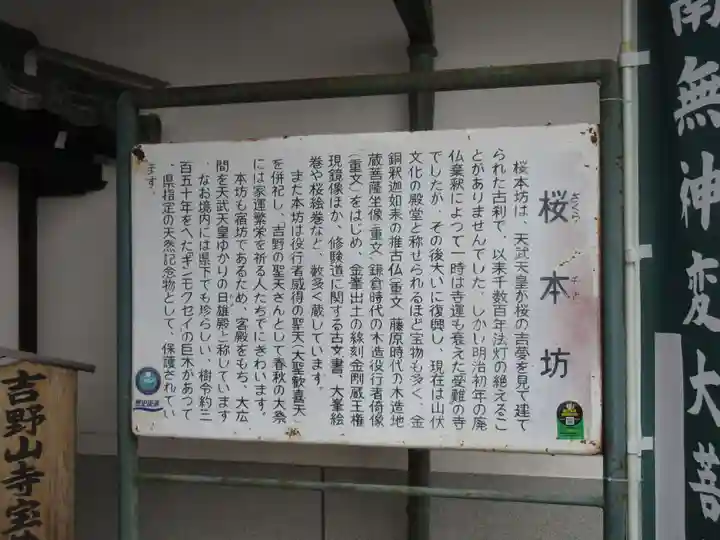 南無神変大菩
桜本坊
さくら
桜本坊は、天武天皇が桜の吉夢を見て建て
られた古刹で、以来千数百年法灯の絶えるこ
とがありませんでした。しかし明治初年の廃
仏棄釈によつて一時は寺運も衰えた受難の寺
でしたが、その後大いに復興し、現在は山伏
文化の殿堂と称せられるほど宝物も多く、金
銅釈迦如来の推古仏(重文)藤原時代の木造地
蔵菩薩坐像(重文)鎌倉時代の木造役行者倚像
(重文)をはじめ、金峯出土の線刻金剛蔵王権
現鏡像ほか、修験道に関する古文書、大峯絵
巻や桜絵巻など、数多く蔵しています。
また本坊は役行者感得の聖天(大聖歓喜天)
を併祀し、吉野の聖天さんとして春秋の大祭
には家運繁栄を祈る人たちでにぎわいます。
本坊も宿坊であるため、客殿をもち、大広
間を天武天皇ゆかりの日雄殿と称しています
なお境内には県下でも珍らしい、樹令約三
百五十年をへたギンモクセイの巨木があつて
、県指定の天然記念物として、保護されてい
ます。
吉野山寺宝